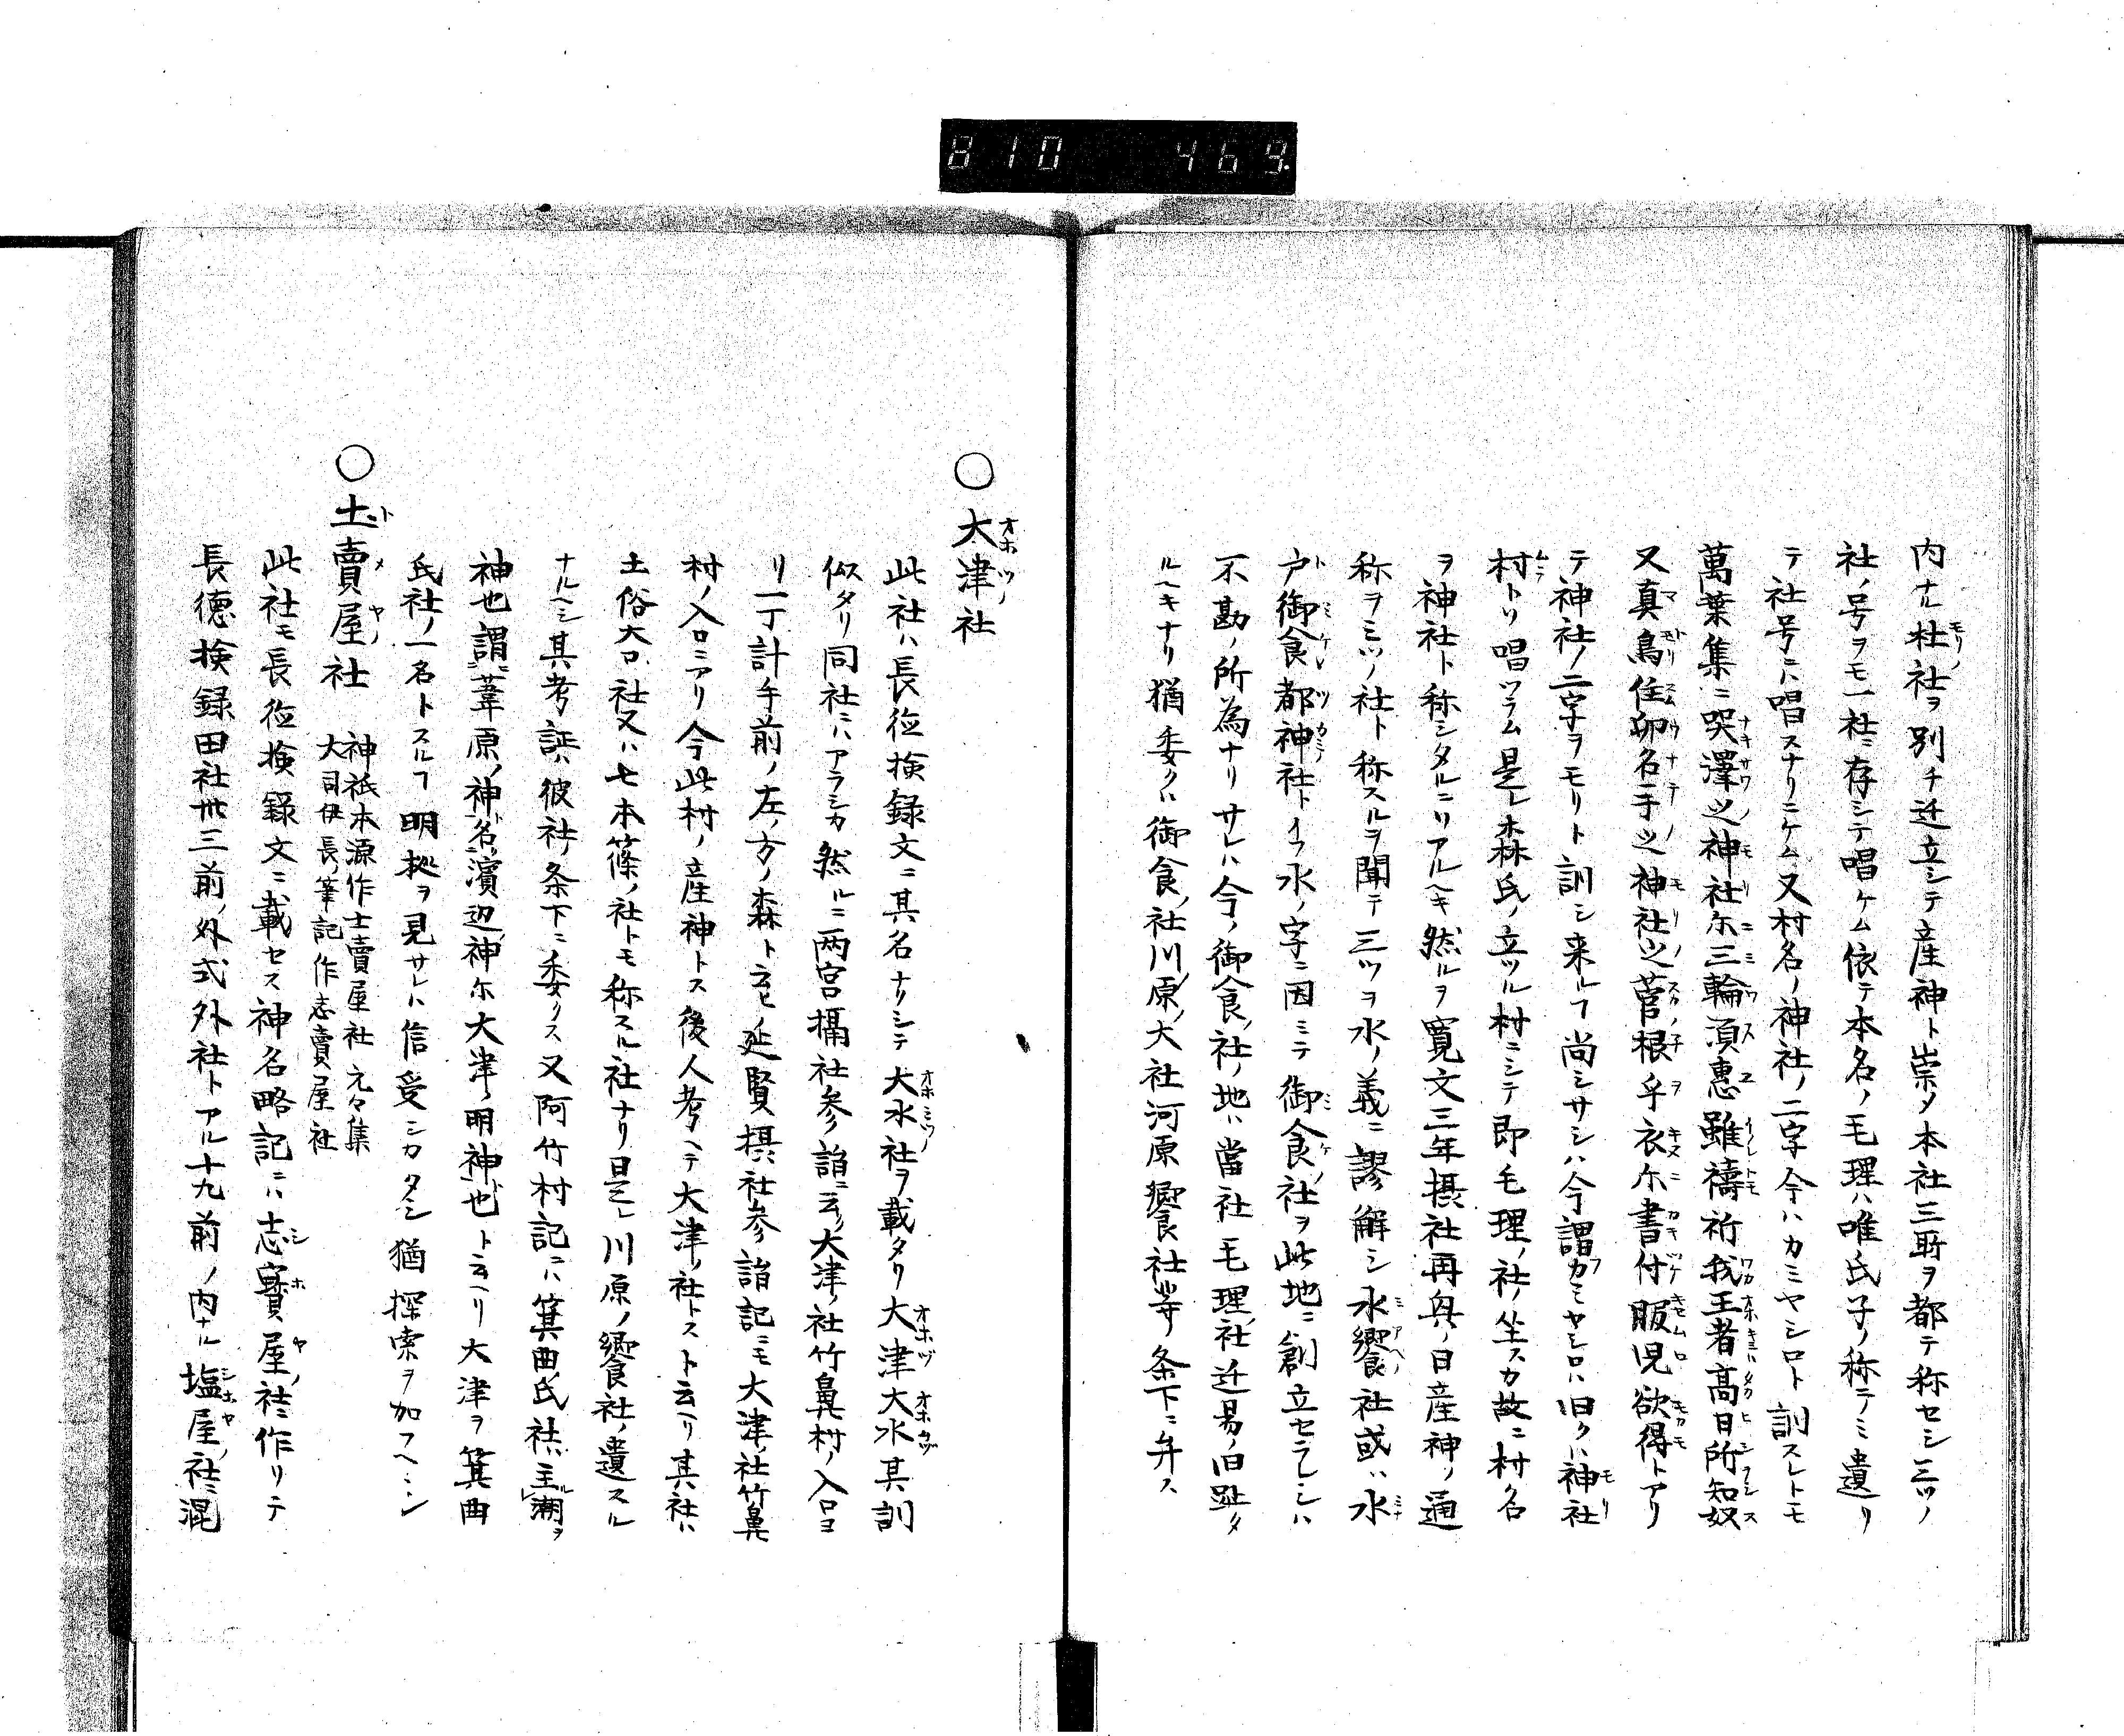 810 469
内ナル杜社ヲ別チ迁立シテ産神ト崇メ本社三所ヲ都テ称セシ三ツノ
社ノ号ヲモ一社ニ存シテ唱ケム依テ本名ノ毛理ハ唯氏子ノ称テミ遺リ
テ社号ニハ唱スナリニケム又村名ノ神社ノ二字今ハカミヤシロト訓スレトモ
萬葉集ニ哭澤之神社尓三輪須恵雖禱祈我王者高日所知奴
又真鳥住卯名手之神社之菅根乎衣尓書付服児欲得トアリ
テ神社ノ二字ヲモリト訓シ来ルヿ尚シサシハ今謂フカミヤシロハ旧クハ神社
村トソ唱ツラム是レ森氏ノ立ツル村ニシテ即毛理ノ社ノ坐スカ故ニ村名
ヲ神社ト称シタルニソアルヘキ然ルヲ寛文三年摂社再興ノ日産神ノ通
称ヲミツノ社ト称スルヲ聞テ三ツヲ水ノ義ニ謬解シ水饗社或ハ水
戸御食都神社トイフ水ノ字ニ因ミテ御食社ヲ此地ニ創立セラレシハ
不勘ノ所為ナリサレハ今ノ御食ノ社ノ地ハ當社毛理ノ社迁易ノ旧趾タ
ルヘキナリ猶委クハ御食ノ社川原ノ大社河原饗社等ノ条下ニ弁ス
〇大津社
此社ハ長徳検録文ニ其名ナリシテ大水社ヲ載タリ大津大水其訓
似タリ同社ニハアラシカ然ルニ両宮摂社参詣ニ云ク大津ノ社竹鼻村ノ入口ヨ
リ一丁計手前ノ左ノ方ノ森ト云ヒ延賢摂社参詣記ニモ大津ノ社竹鼻
村ノ入口ニアリ今此村ノ産神トス後人考ヘテ大津ノ社トスト云ヘリ其社ハ
土俗大口社又ハ七本篠ノ社トモ称スル社ナリ是レ川原ノ饗食社ノ遺スル
ナルヘシ其考証ハ彼社ノ条下ニ委クス又阿竹村記ニハ箕曲氏社ハ主潮ヲ
神也謂葦原ノ神名濱辺ノ神尓大津ノ明神也ト云ヘリ大津ヲ箕曲
氏社ノ一名トスルヿ明拠ヲ見サレハ信受シカタシ猶探索ヲ加フヘシ
〇土賣屋社 神祇本源作士賣屋社元々集
大司伊長ノ筆記作志賣屋社
此社モ長徳検録文ニ載セス神名略記ニハ志寳屋社ニ作リテ
長徳検録田社卅三前ノ外式外社トアル十九前ノ内ナル塩屋ノ社ニ混